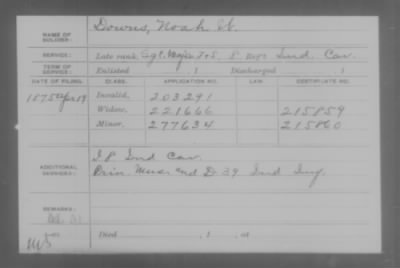 NAME OF SOLDIER: Downs, Noah W.
SERVICE: Late rank, Sgt. Major F&S, 8 Regt Ind. Cav.
TERM OF SERVICE: Enlisted , 1 Discharged , 1
DATE OF FILING. CLASS. APPLICATION NO. LAW. CERTIFICATE NO.
1875 Apr 19 Invalid, 203291
Widow, 221666 215859
Minor, 277634 215860
ADDITIONAL SERVICES: I. 8 Ind Cav.
Prin Muse and D 39 Ind Inf.
REMARKS:
Died , 1 , at